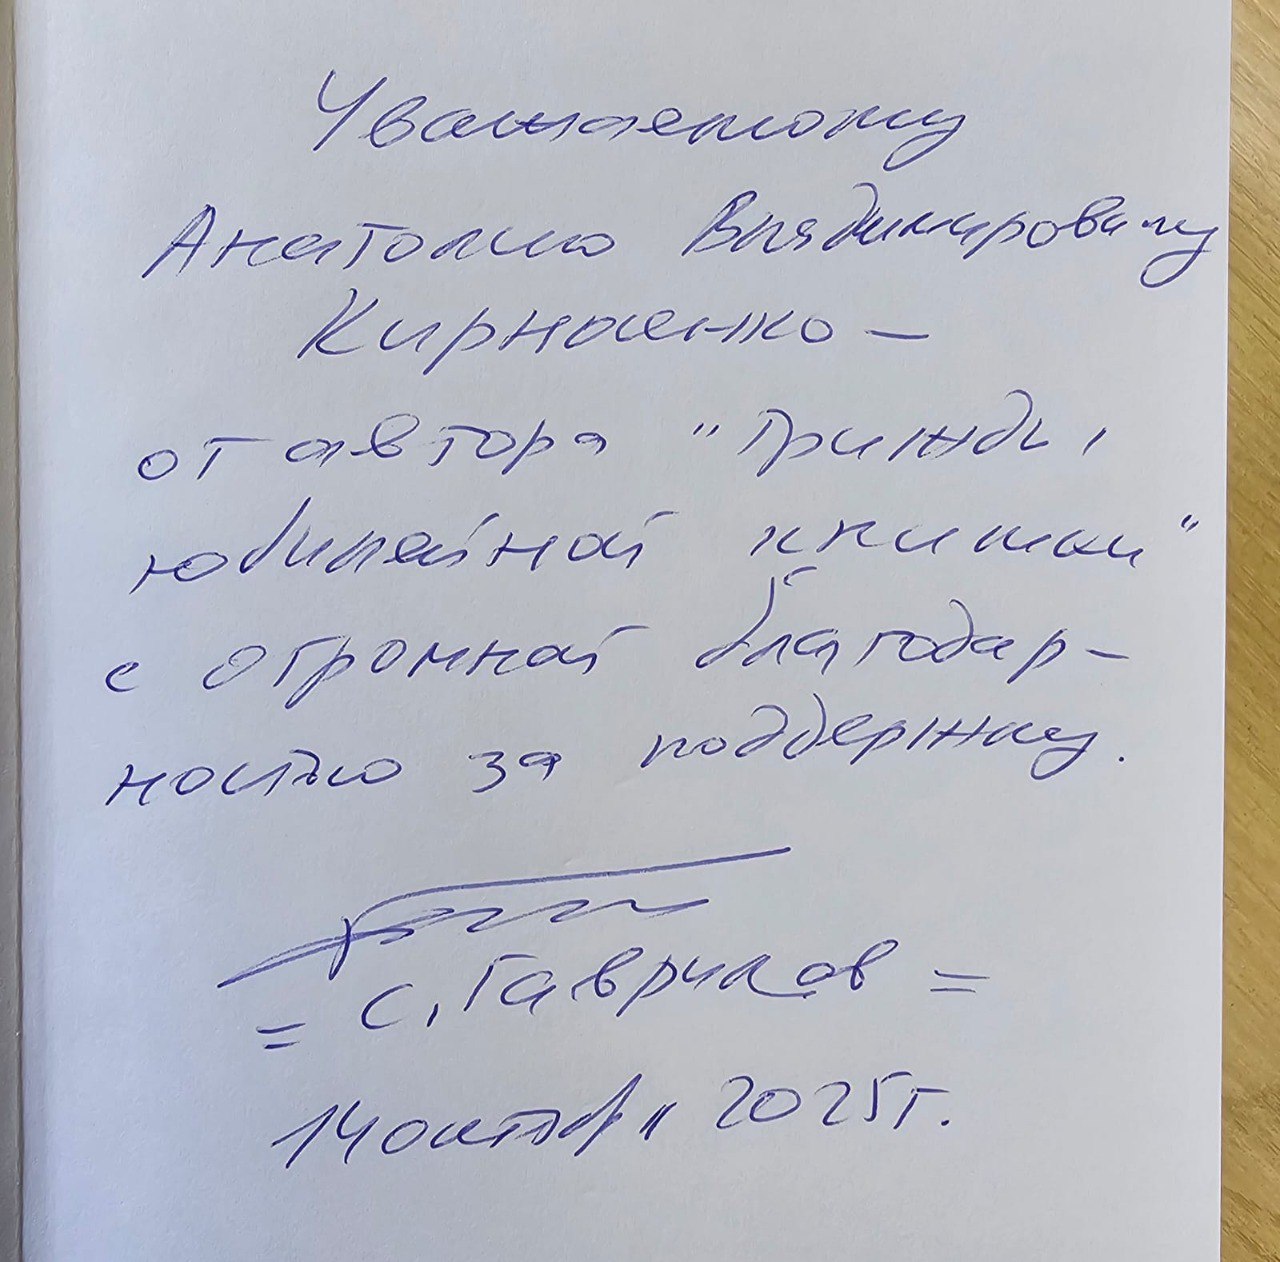 Уважаемому
Анатолию Владимировичу
Кирнаенко –
от автора "Трижды
юбилейной книжки"
с огромной благодар-
ностью за поддержку.
= С. Гавриков =
14 октября 2025г.